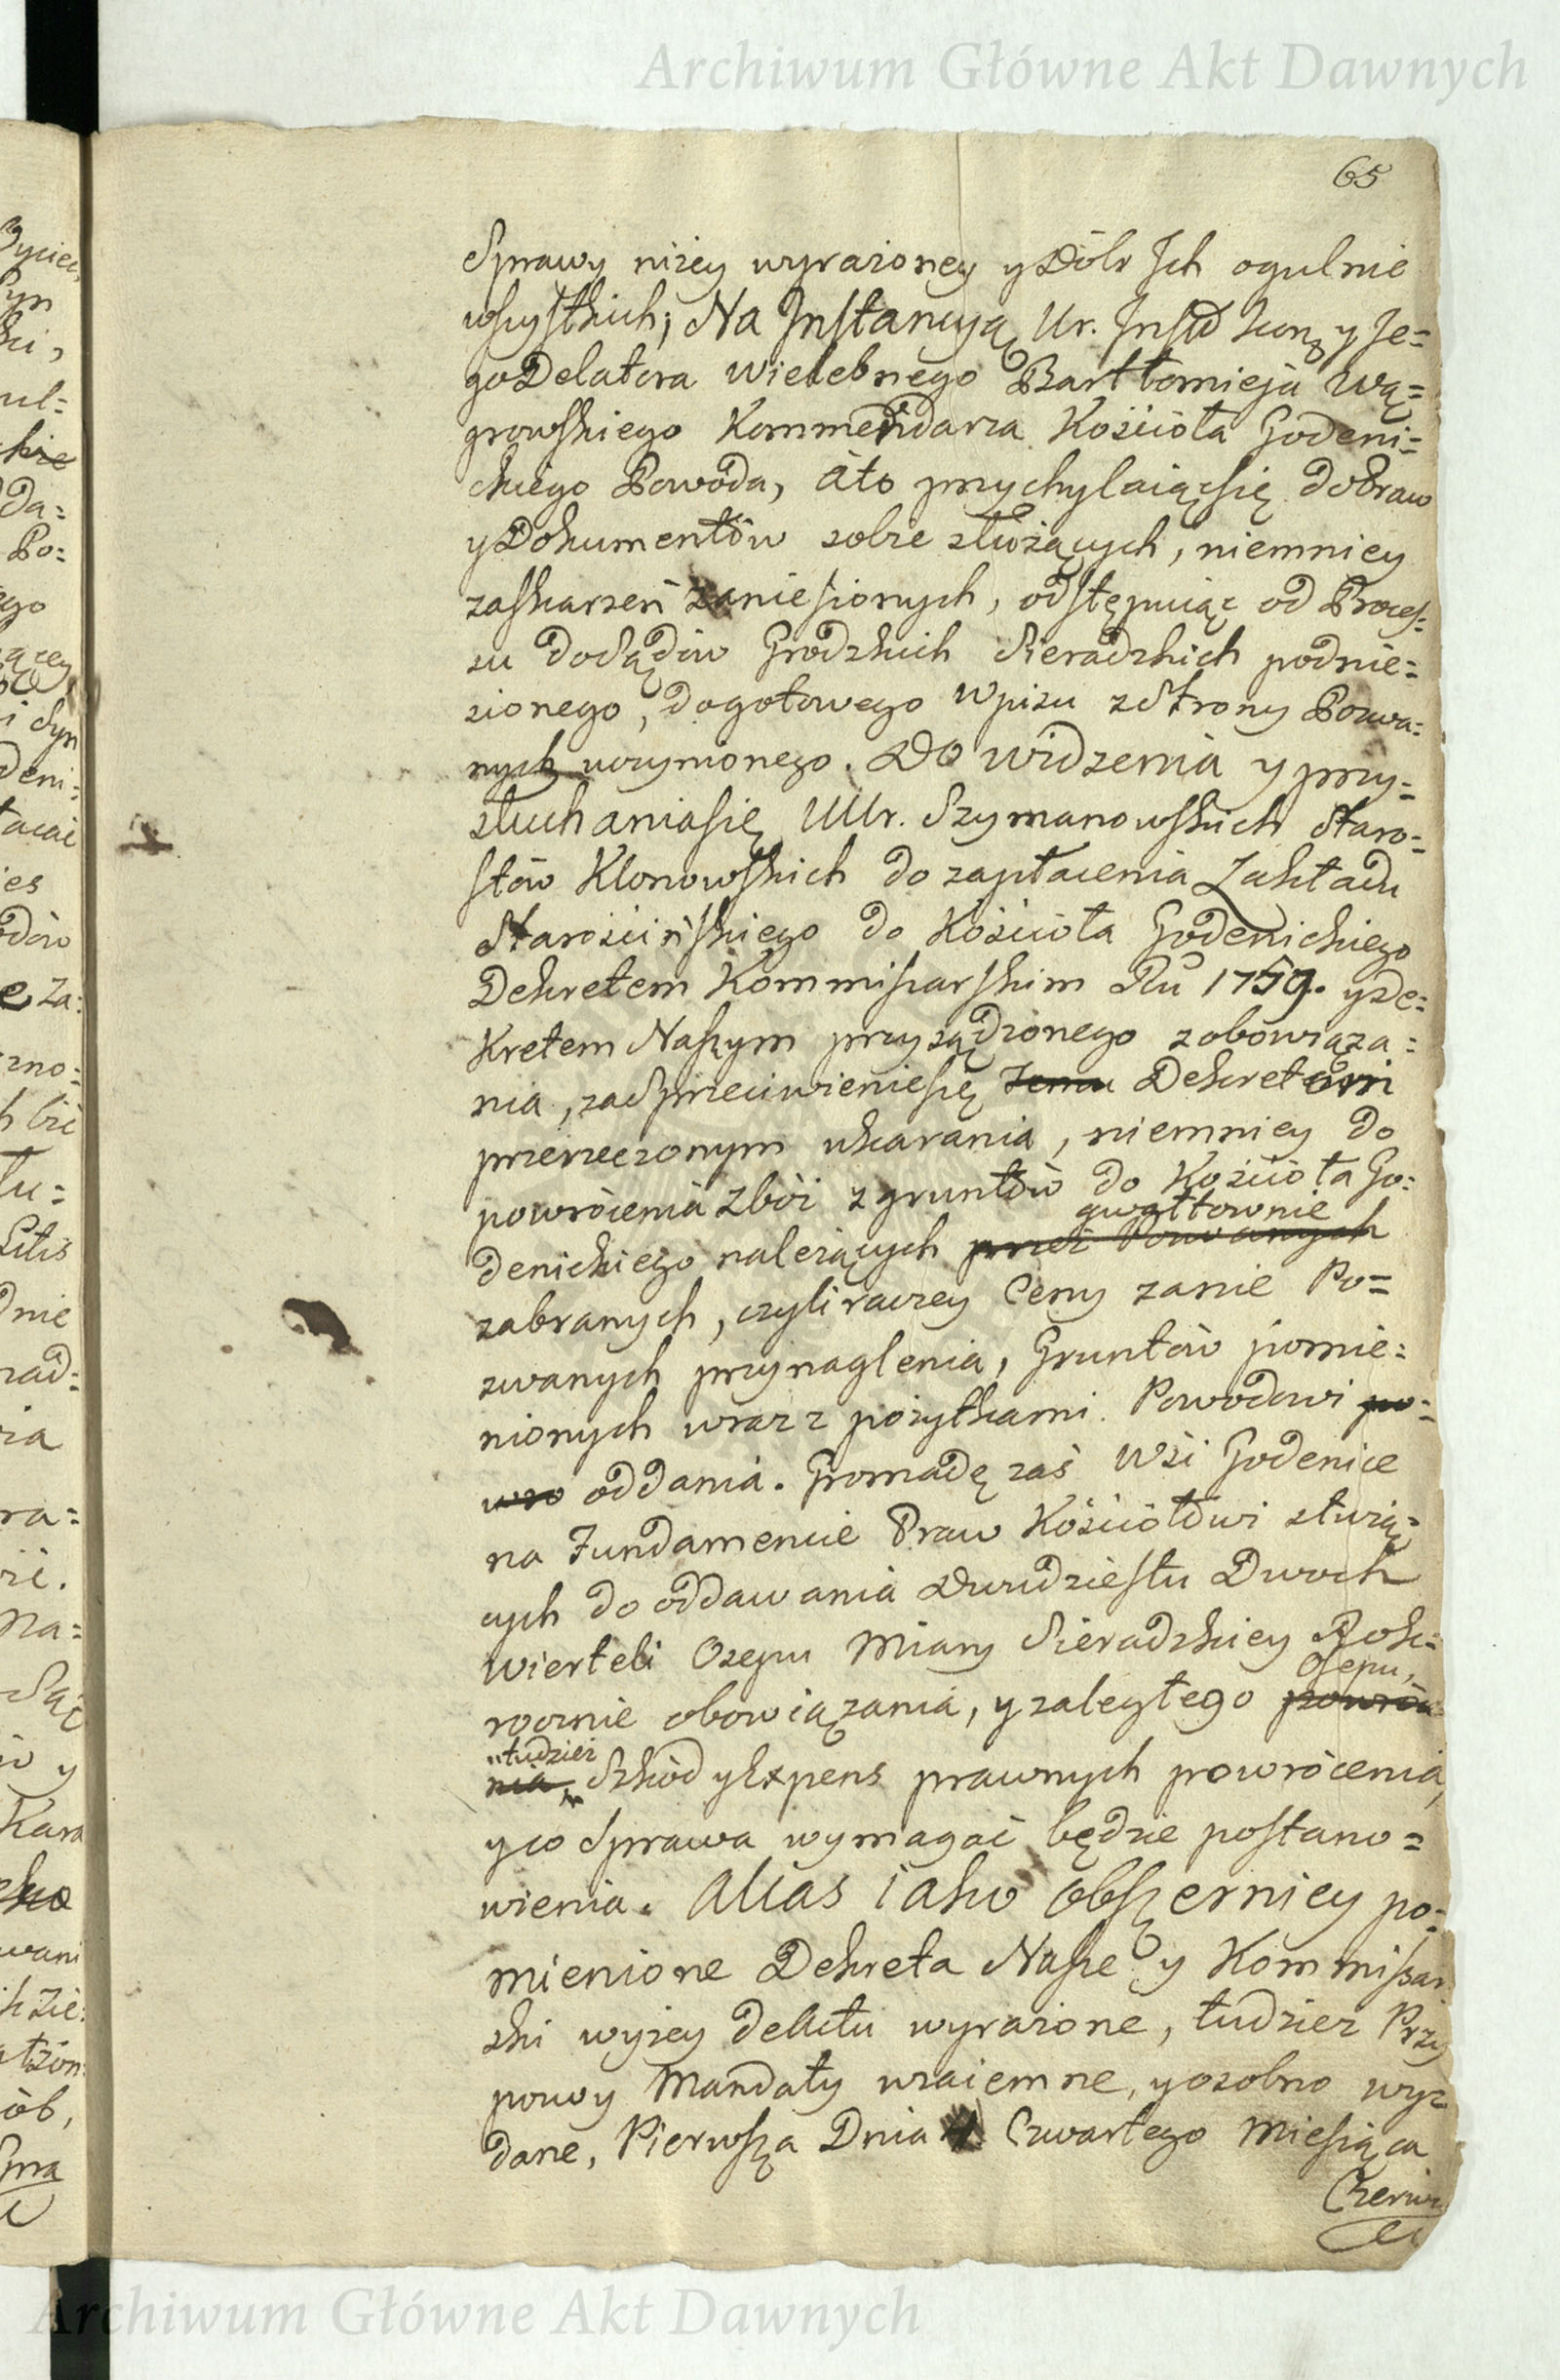 Archiwum Główne Akt Dawnych
65
Sprawy niżey wyrażoney y Dóbr Ich ogulnie
wszystkich; Na Instancyą Ur. Inst. y Je=
go Delatora Wielebnego Bartłomieja Wą=
growskiego Kommendarza Kościoła Godeni=
ckiego Powoda, áto przychylaiąc się do Praw
y Dokumentów sobie służących, niemniey
zaskarżeń zaniesionych, odstępuiąc od Proces=
su do Sądów Grodzkich Sieradzkich podnie=
sionego, do gotowego Wpisu z Strony Pozwa=
nych uczynionego. Do widzenia y przy=
słuchania się UUr. Szymanowskich Staro=
stów Klonowskich do zapłacenia Zakładu
Starościńskiego do Kościoła Godenickiego
Dekretem Kommissarskim Rū 1759. y De=
kretem Naszym przysądzonego zobowiąza=
nia, za Sprzeciwienie się Dekretom
przerzeczonym ukarania, niemniey do
powrócenia Zbóż z gruntów do Kościoła Go=
gwałtownie
denickiego należących przez Pozwanych
zabranych, czyli raczey Ceny za nie Po=
zwanych przynaglenia, Gruntów pomie=
nionych wraz z pożytkami Powodowi po=
wro oddania. Gromadę zaś Wsi Godenice
na Fundamencie Praw Kościołowi służą=
cych do oddawania Dwudziestu Dwóch
Wierteli Osepu Miary Sieradzkiey Rok=
Osepu,
rocznie obowiązania, y zaległego powróce
tudzież
nia, Szkód y Expens prawnych powrócenia,
y co Sprawa wymagać będzie postano=
wienia. Alias iako obszerniey po=
mienione Dekreta Nasze y Kommissar
ski wyżey de Actu wyrażone, tudzież Przy
powy Mandaty wzaiemne, y osobno wy=
dane, Pierwsza Dnia Czwartego Miesiąca
Czerwca
Archiwum Główne Akt Dawnych